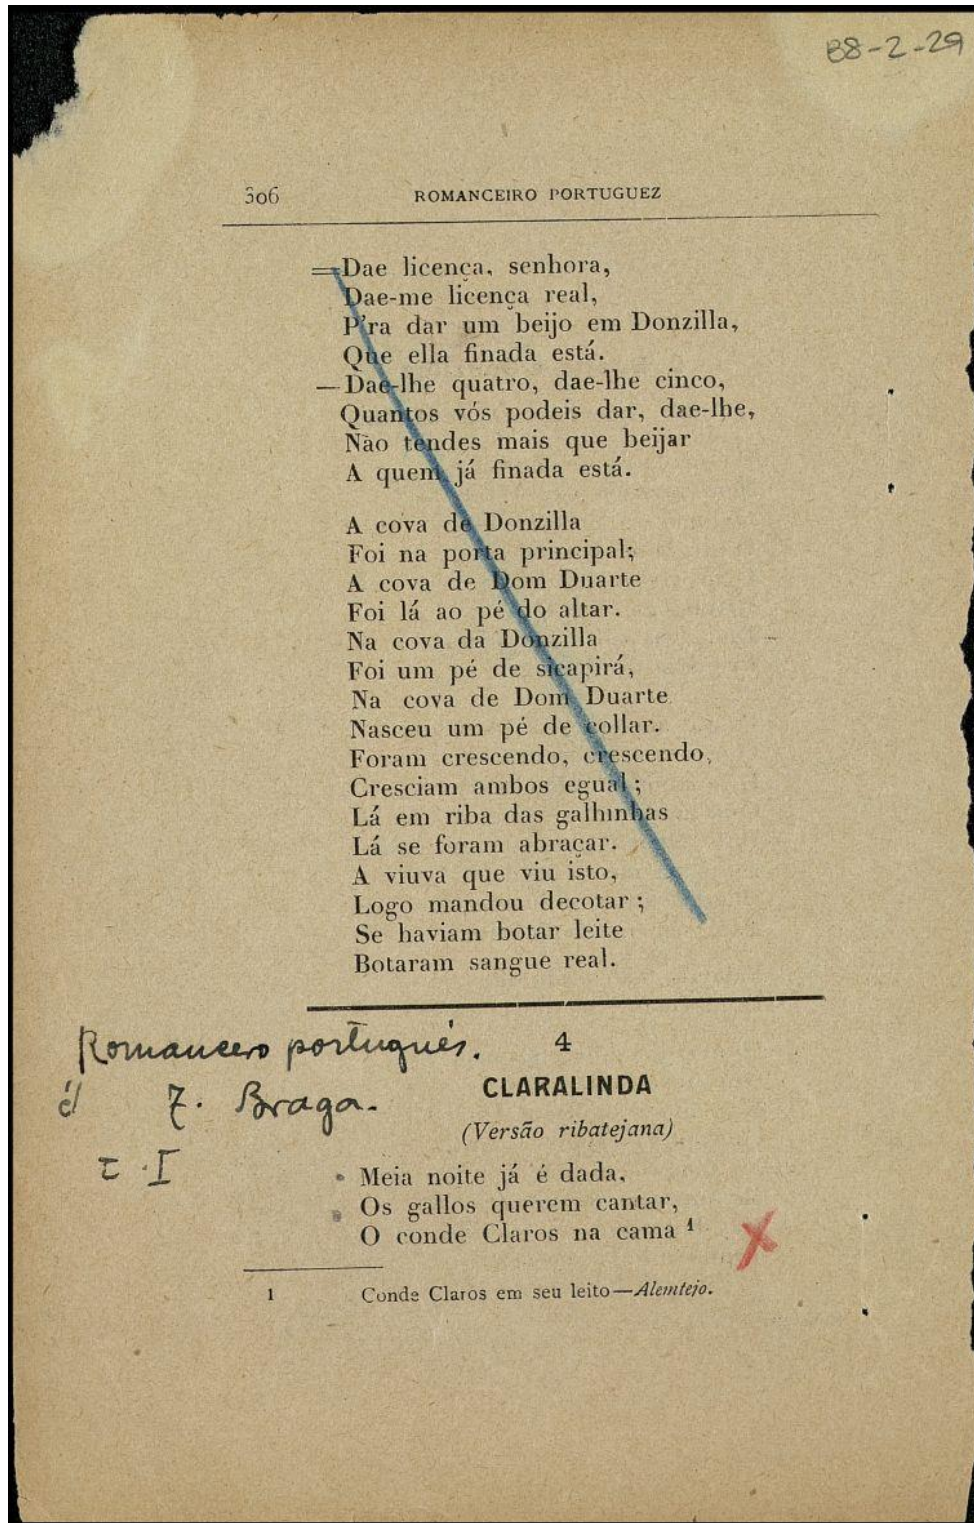 88-2-29
306 ROMANCEIRO PORTUGUEZ
=Dae licença, senhora,
Dae-me licença real,
P'ra dar um beijo em Donzilla,
Que ella finada está.
—Dae-lhe quatro, dae-lhe cinco,
Quantos vós podeis dar, dae-lhe,
Não tendes mais que beijar
A quem já finada está.
A cova de Donzilla
Foi na porta principal;
A cova de Dom Duarte
Foi lá ao pé do altar.
Na cova da Donzilla
Foi um pé de sicapirá,
Na cova de Dom Duarte
Nasceu um pé de collar.
Foram crescendo, crescendo,
Cresciam ambos egual;
Lá em riba das galhinhas
Lá se foram abraçar.
A viuva que viu isto,
Logo mandou decotar;
Se haviam botar leite
Botaram sangue real.
Romancero portugués.
T. Braga.
t. I
4
CLARALINDA
(Versão ribatejana)
Meia noite já é dada,
Os gallos querem cantar,
O conde Claros na cama 1
1 Conde Claros em seu leito—Alemtejo.